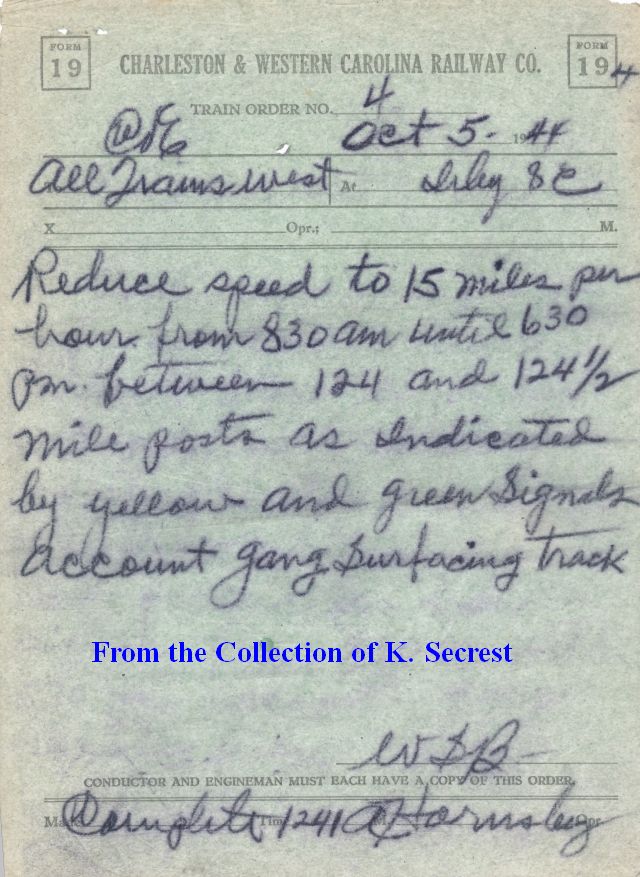 FORM 19
CHARLESTON & WESTERN CAROLINA RAILWAY CO.
FORM 19 4
TRAIN ORDER NO. 4
Oct 5- 1944
All Trains west At
X Opr.; M.
Reduce speed to 15 miles per
hour from 830 am until 630
pm. between 124 and 124 1/2
mile posts as Indicated
by yellow and green Signals
account gang Surfacing Track
From the Collection of K. Secrest
WSB
CONDUCTOR AND ENGINEMAN MUST EACH HAVE A COPY OF THIS ORDER.
Made Complete Time 1241 A M Hornsby Opr.